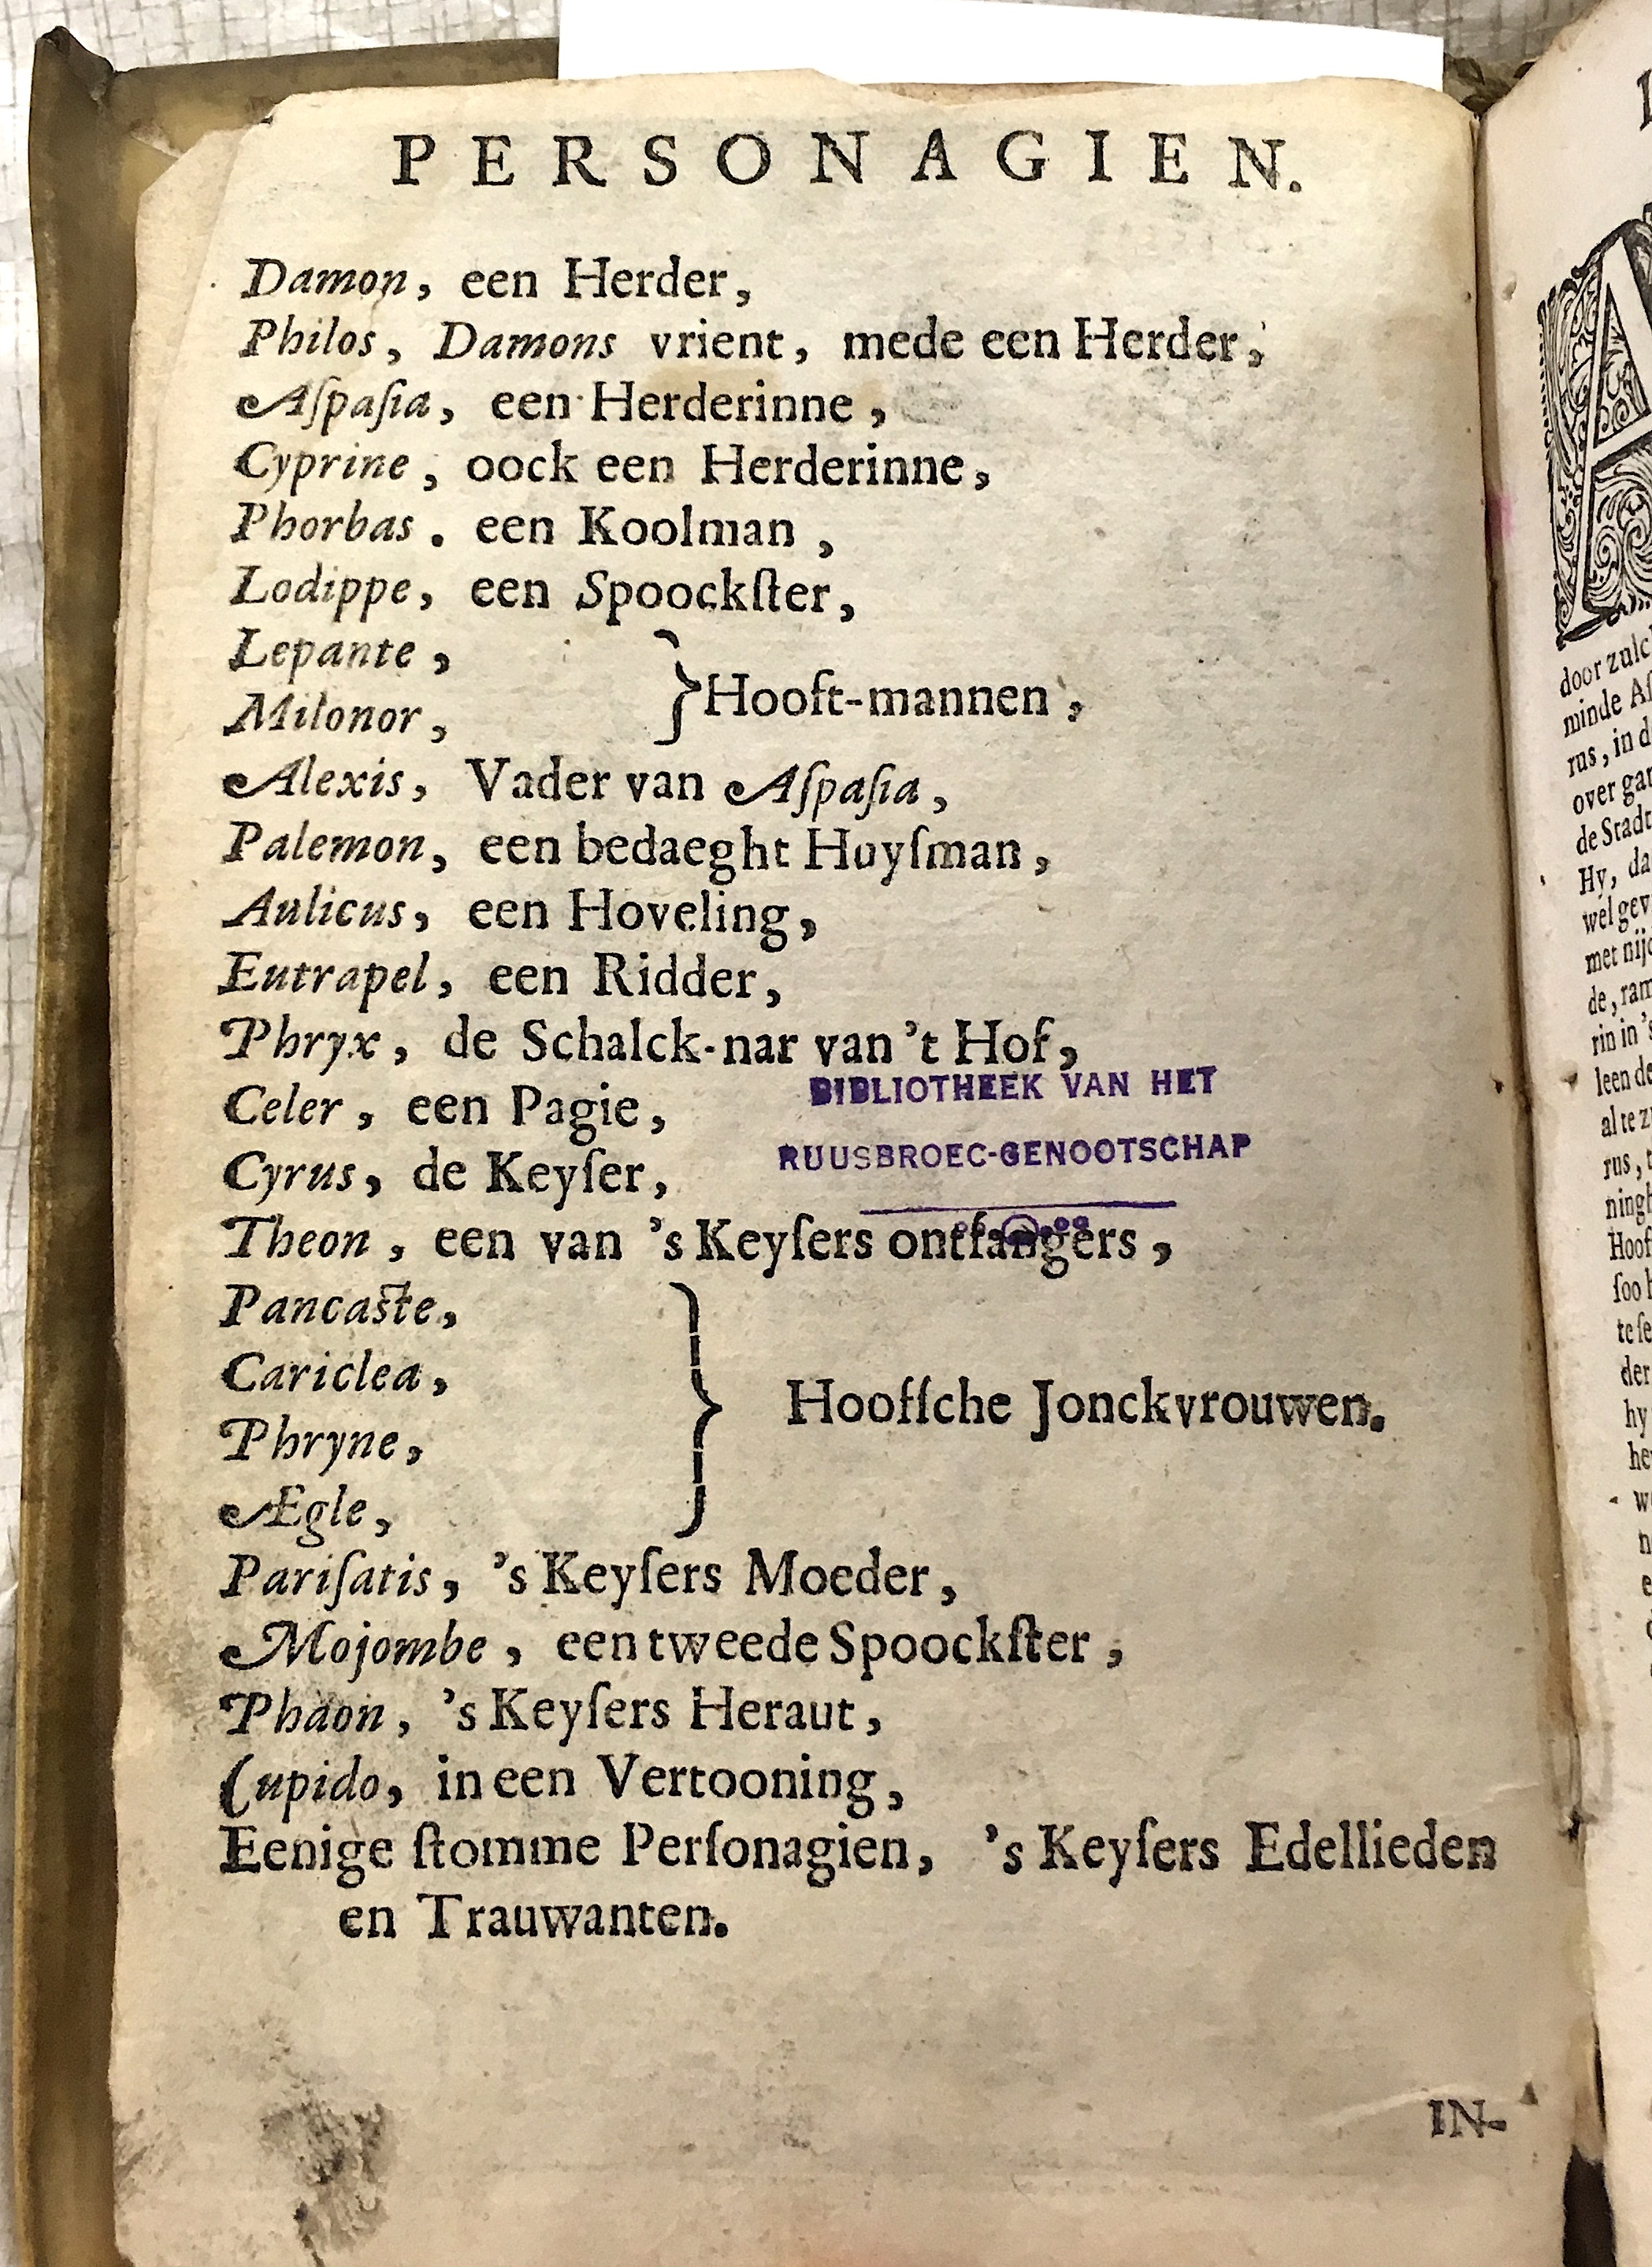 PERSONAGIEN.
Damon, een Herder,
Philos, Damons vrient, mede een Herder,
Aſpaſia, een Herderinne,
Cyprine, oock een Herderinne,
Phorbas. een Koolman,
Lodippe, een Spoockſter,
Lepante,
Milonor,
} Hooft-mannen,
Alexis, Vader van Aſpaſia,
Palemon, een bedaeght Huyſman,
Aulicus, een Hoveling,
Eutrapel, een Ridder,
Phryx, de Schalck-nar van 't Hof,
Celer, een Pagie,
BIBLIOTHEEK VAN HET
RUUSBROEC-GENOOTSCHAP
Cyrus, de Keyſer,
Theon, een van 's Keyſers ontfangers,
Pancaſte,
Cariclea,
Phryne,
Ægle,
} Hooffche Jonckvrouwen.
Pariſatis, 's Keyſers Moeder,
Mojombe, een tweede Spoockſter,
Phaon, 's Keyſers Heraut,
Cupido, in een Vertooning,
Eenige ſtomme Perſonagien, 's Keyſers Edellieden
en Trauwanten.
IN-
door zulc
minde Aſ
rus, in d
over gan
de Stadt
Hy, da
wel gev
met nijd
de, ram
rin in 's
leen de
al te z
rus, t
ningh
Hoof
ſoo h
te ſe
der
hy
he